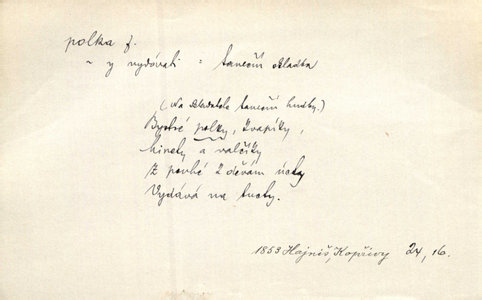 polka f.
~ y vydávati = taneční skladba
(Na skladatele taneční hudby.)
Bystré polky, kvapíky,
a valčíky
Z pouhé k děvám úcty
Vydává na tucty.
1853 Hajniš, Kopřivy 24, 16.